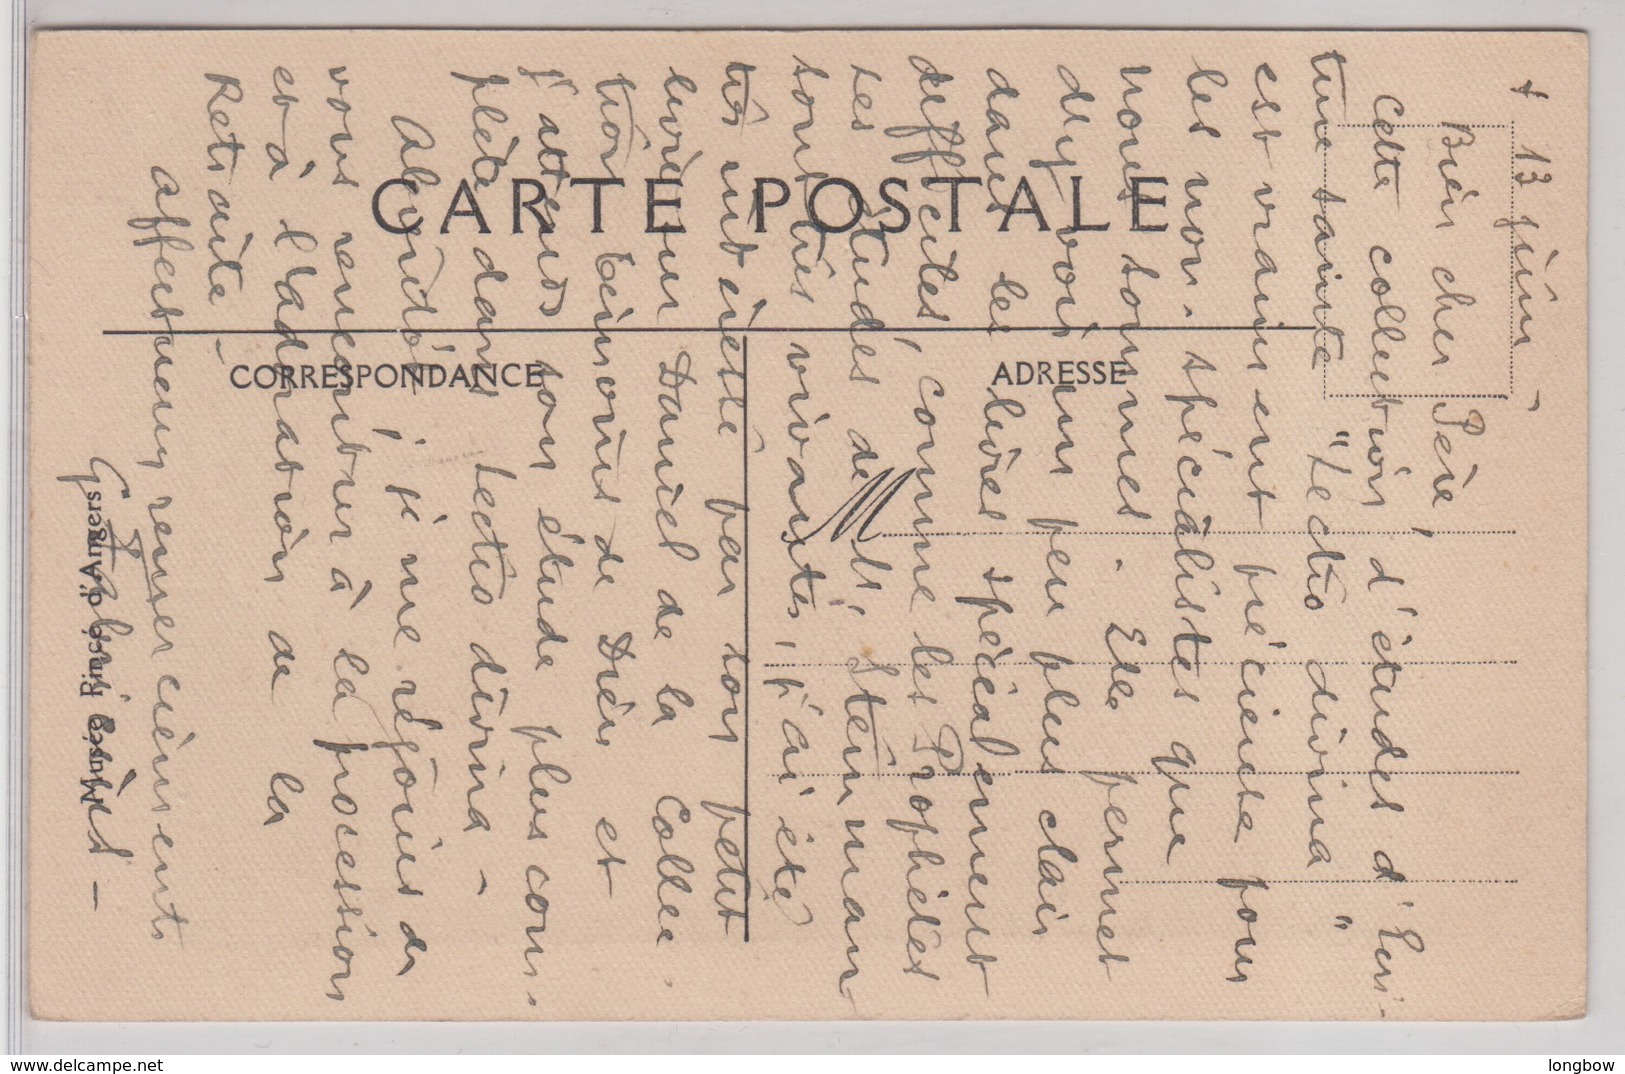 + 13 juin -
Bien cher Père,
Cette collection d'études d'Ecri-
ture sainte "Lectio divina"
est vraiment précieuse pour
les non-spécialistes que
nous sommes. Elle permet
d'y voir un peu plus clair
dans les livres spécialement
difficiles, comme les Prophètes
Les études de Mr Steinmann
sont très vivantes, j'ai été
très intéressé par son petit
livre sur Daniel de la Collec.
tion Témoins de Dieu et
j'attends son étude plus com-
plète dans Lectio divina -
A bientôt, je me réjouis de
vous rencontrer à la procession
et à l'adoration de la
Retraite -
Affectueux remerciements
CARTE POSTALE
CORRESPONDANCE
ADRESSE
M
Musée Pincé d'Angers
longbow
www.delcampe.net